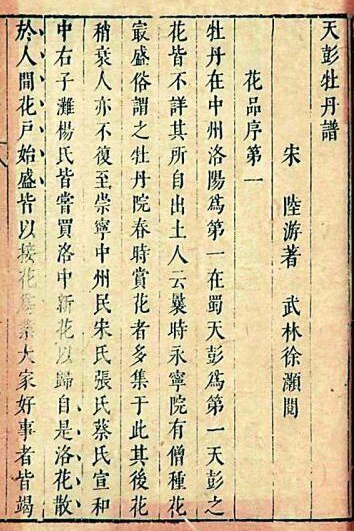 天彭牡丹譜
宋 陸游著 武林徐灝閱
花品序第一
牡丹在中州洛陽爲第一在蜀天彭爲第一天彭之
花皆不詳其所自出土人云曩時永寧院有僧種花
最盛俗謂之牡丹院春時賞花者多集于此其後花
稍衰人亦不復至崇寧中州民宋氏張氏蔡氏宣和
中右子灘楊氏皆嘗買洛中新花以歸自是洛花散
於人間花戶始盛皆以接花爲業大家好事者皆竭